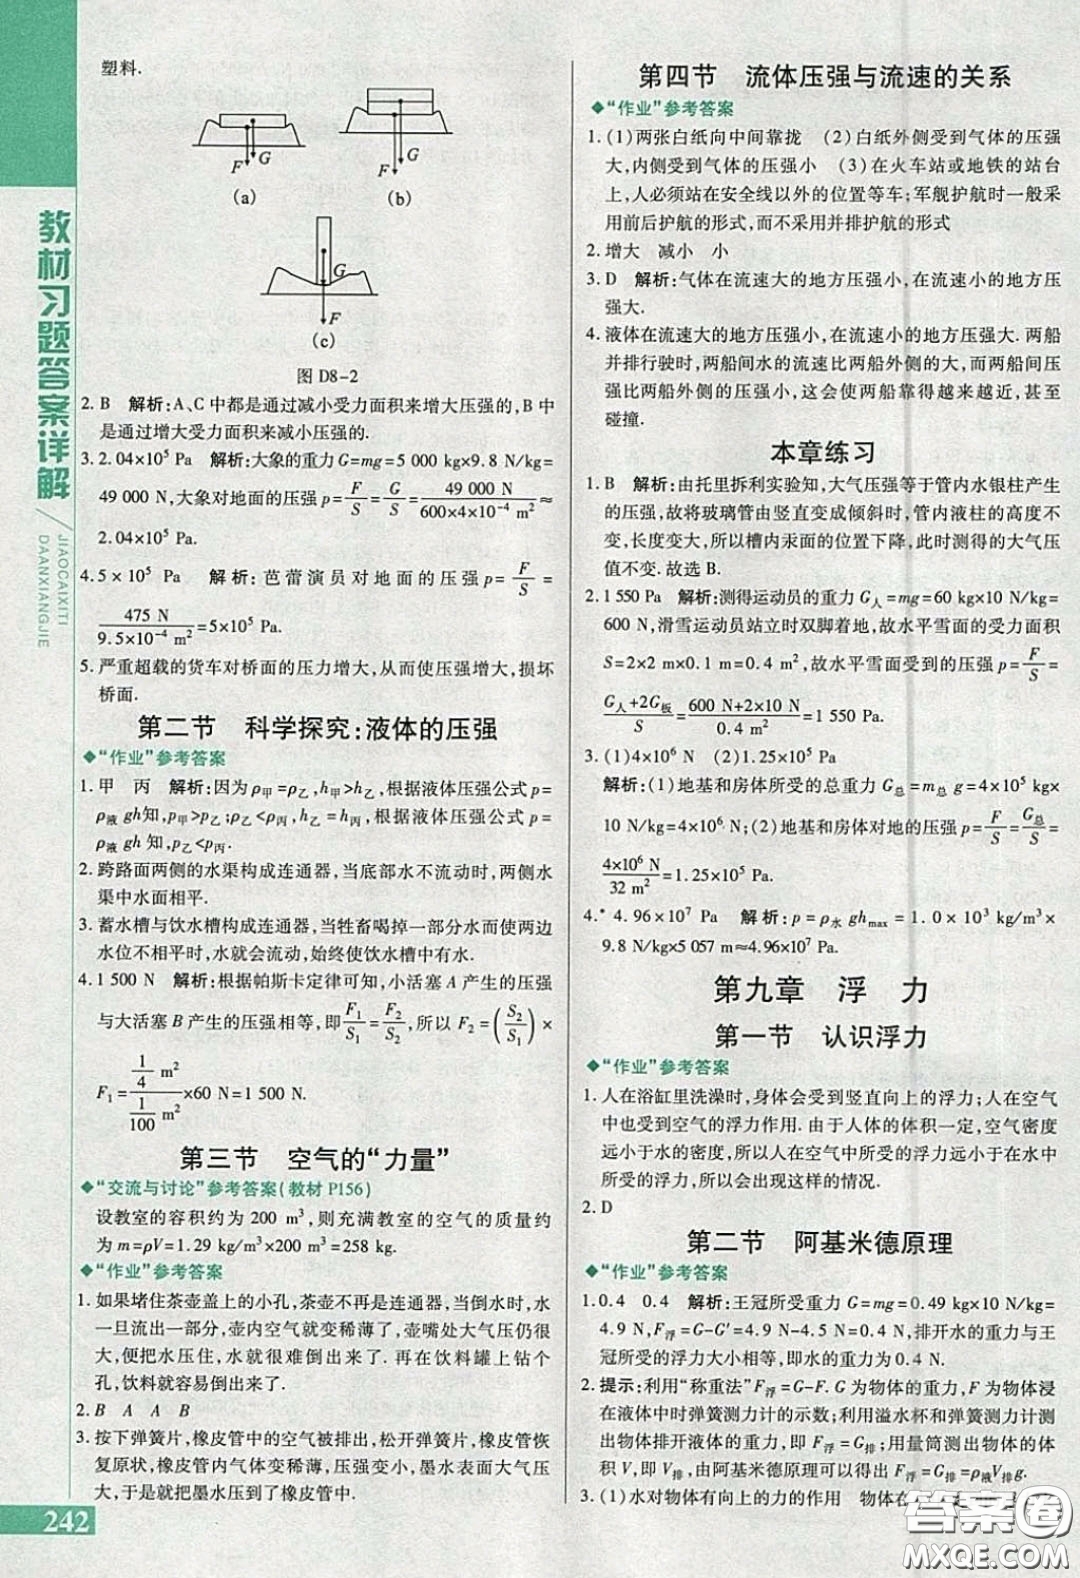 塑料.
F G
(a)
F G
(b)
G
F
(c)
图 D8-2
2. B 解析:A、C中都是通过减小受力面积来增大压强的,B中
是通过增大受力面积来减小压强的.
3. 2.04×10⁵ Pa 解析:大象的重力G=mg=5 000 kg×9.8 N/kg=
49 000 N,大象对地面的压强p=F/S=G/S=49 000 N/(600×4×10⁻⁴ m²)≈
2.04×10⁵ Pa.
4. 5×10⁵ Pa 解析:芭蕾演员对地面的压强p=F/S=
475 N/(9.5×10⁻⁴ m²)=5×10⁵ Pa.
5. 严重超载的货车对桥面的压力增大,从而使压强增大,损坏
桥面.
第二节 科学探究:液体的压强
◆“作业”参考答案
1. 甲 丙 解析:因为ρ甲=ρ乙,h甲>h乙,根据液体压强公式p=
ρ液gh知,p甲>p乙;ρ乙<ρ丙,h乙=h丙,根据液体压强公式p=
ρ液gh知,p乙<p丙.
2. 跨路面两侧的水渠构成连通器,当底部水不流动时,两侧水
渠中水面相平.
3. 蓄水槽与饮水槽构成连通器,当牲畜喝掉一部分水而使两边
水位不相平时,水就会流动,始终使饮水槽中有水.
4. 1 500 N 解析:根据帕斯卡定律可知,小活塞A产生的压强
与大活塞B产生的压强相等,即F₁/S₁=F₂/S₂,所以F₂=(S₂/S₁)×
F₁=(1/4 m²)/(1/100 m²)×60 N=1 500 N.
第三节 空气的“力量”
◆“交流与讨论”参考答案(教材P156)
设教室的容积约为200 m³,则充满教室的空气的质量约
为m=ρV=1.29 kg/m³×200 m³=258 kg.
◆“作业”参考答案
1. 如果堵住茶壶盖上的小孔,茶壶不再是连通器,当倒水时,水
一旦流出一部分,壶内空气就变稀薄了,壶嘴处大气压仍很
大,便把水压住,水就很难倒出来了. 再在饮料罐上钻个
孔,饮料就容易倒出来了.
2. B A A B
3. 按下弹簧片,橡皮管中的空气被排出,松开弹簧片,橡皮管恢
复原状,橡皮管内气体变稀薄,压强变小,墨水表面大气压
大,于是就把墨水压到了橡皮管中.
教材习题答案详解
JIAOCAIXITI
DAANXIANGJIE
242
第四节 流体压强与流速的关系
◆“作业”参考答案
1. (1)两张白纸向中间靠拢 (2)白纸外侧受到气体的压强
大,内侧受到气体的压强小 (3)在火车站或地铁的站台
上,人必须站在安全线以外的位置等车;军舰护航时一般采
用前后护航的形式,而不采用并排护航的形式
2. 增大 减小 小
3. D 解析:气体在流速大的地方压强小,在流速小的地方压
强大.
4. 液体在流速大的地方压强小,在流速小的地方压强大. 两船
并排行驶时,两船间水的流速比两船外侧的大,而两船间压
强比两船外侧的压强小,这会使两船靠得越来越近,甚至
碰撞.
本章练习
1. B 解析:由托里拆利实验知,大气压强等于管内水银柱产生
的压强,故将玻璃管由竖直变成倾斜时,管内液柱的高度不
变,长度变大,所以槽内汞面的位置下降,此时测得的大气压
值不变. 故选B.
2. 1 550 Pa 解析:测得运动员的重力G人=mg=60 kg×10 N/kg=
600 N,滑雪运动员站立时双脚着地,故水平雪面的受力面积
S=2×2 m×0.1 m=0.4 m²,故水平雪面受到的压强p=F/S=
(G人+2G板)/S=(600 N+2×10 N)/(0.4 m²)=1 550 Pa.
3. (1)4×10⁶ N (2)1.25×10⁵ Pa
解析:(1)地基和房体所受的总重力G总=m总g=4×10⁵ kg×
10 N/kg=4×10⁶ N;(2)地基和房体对地的压强p=F/S=G总/S=
4×10⁶ N/32 m²=1.25×10⁵ Pa.
4.* 4.96×10⁷ Pa 解析:p=ρ水ghmax=1.0×10³ kg/m³×
9.8 N/kg×5 057 m≈4.96×10⁷ Pa.
第九章 浮 力
第一节 认识浮力
◆“作业”参考答案
1. 人在浴缸里洗澡时,身体会受到竖直向上的浮力;人在空气
中也受到空气的浮力作用. 由于人体的体积一定,空气密度
远小于水的密度,所以人在空气中所受的浮力远小于在水中
所受的浮力,于是会出现这样的情况.
2. D
第二节 阿基米德原理
◆“作业”参考答案
1. 0.4 0.4 解析:王冠所受重力G=mg=0.49 kg×10 N/kg=
4.9 N,F浮=G-G′=4.9 N-4.5 N=0.4 N,排开水的重力与王
冠所受的浮力大小相等,即水的重力为0.4 N.
2. 提示:利用“称重法”F浮=G-F. G为物体的重力,F为物体浸
在液体中时弹簧测力计的示数;利用溢水杯和弹簧测力计测
出物体排开液体的重力,即F浮=G排;用量筒测出物体的体
积V,即V排,由阿基米德原理可以得出F浮=G排=ρ液V排g.
3. (1)水对物体有向上的力的作用 物体在
答案圈
MXQE.COM